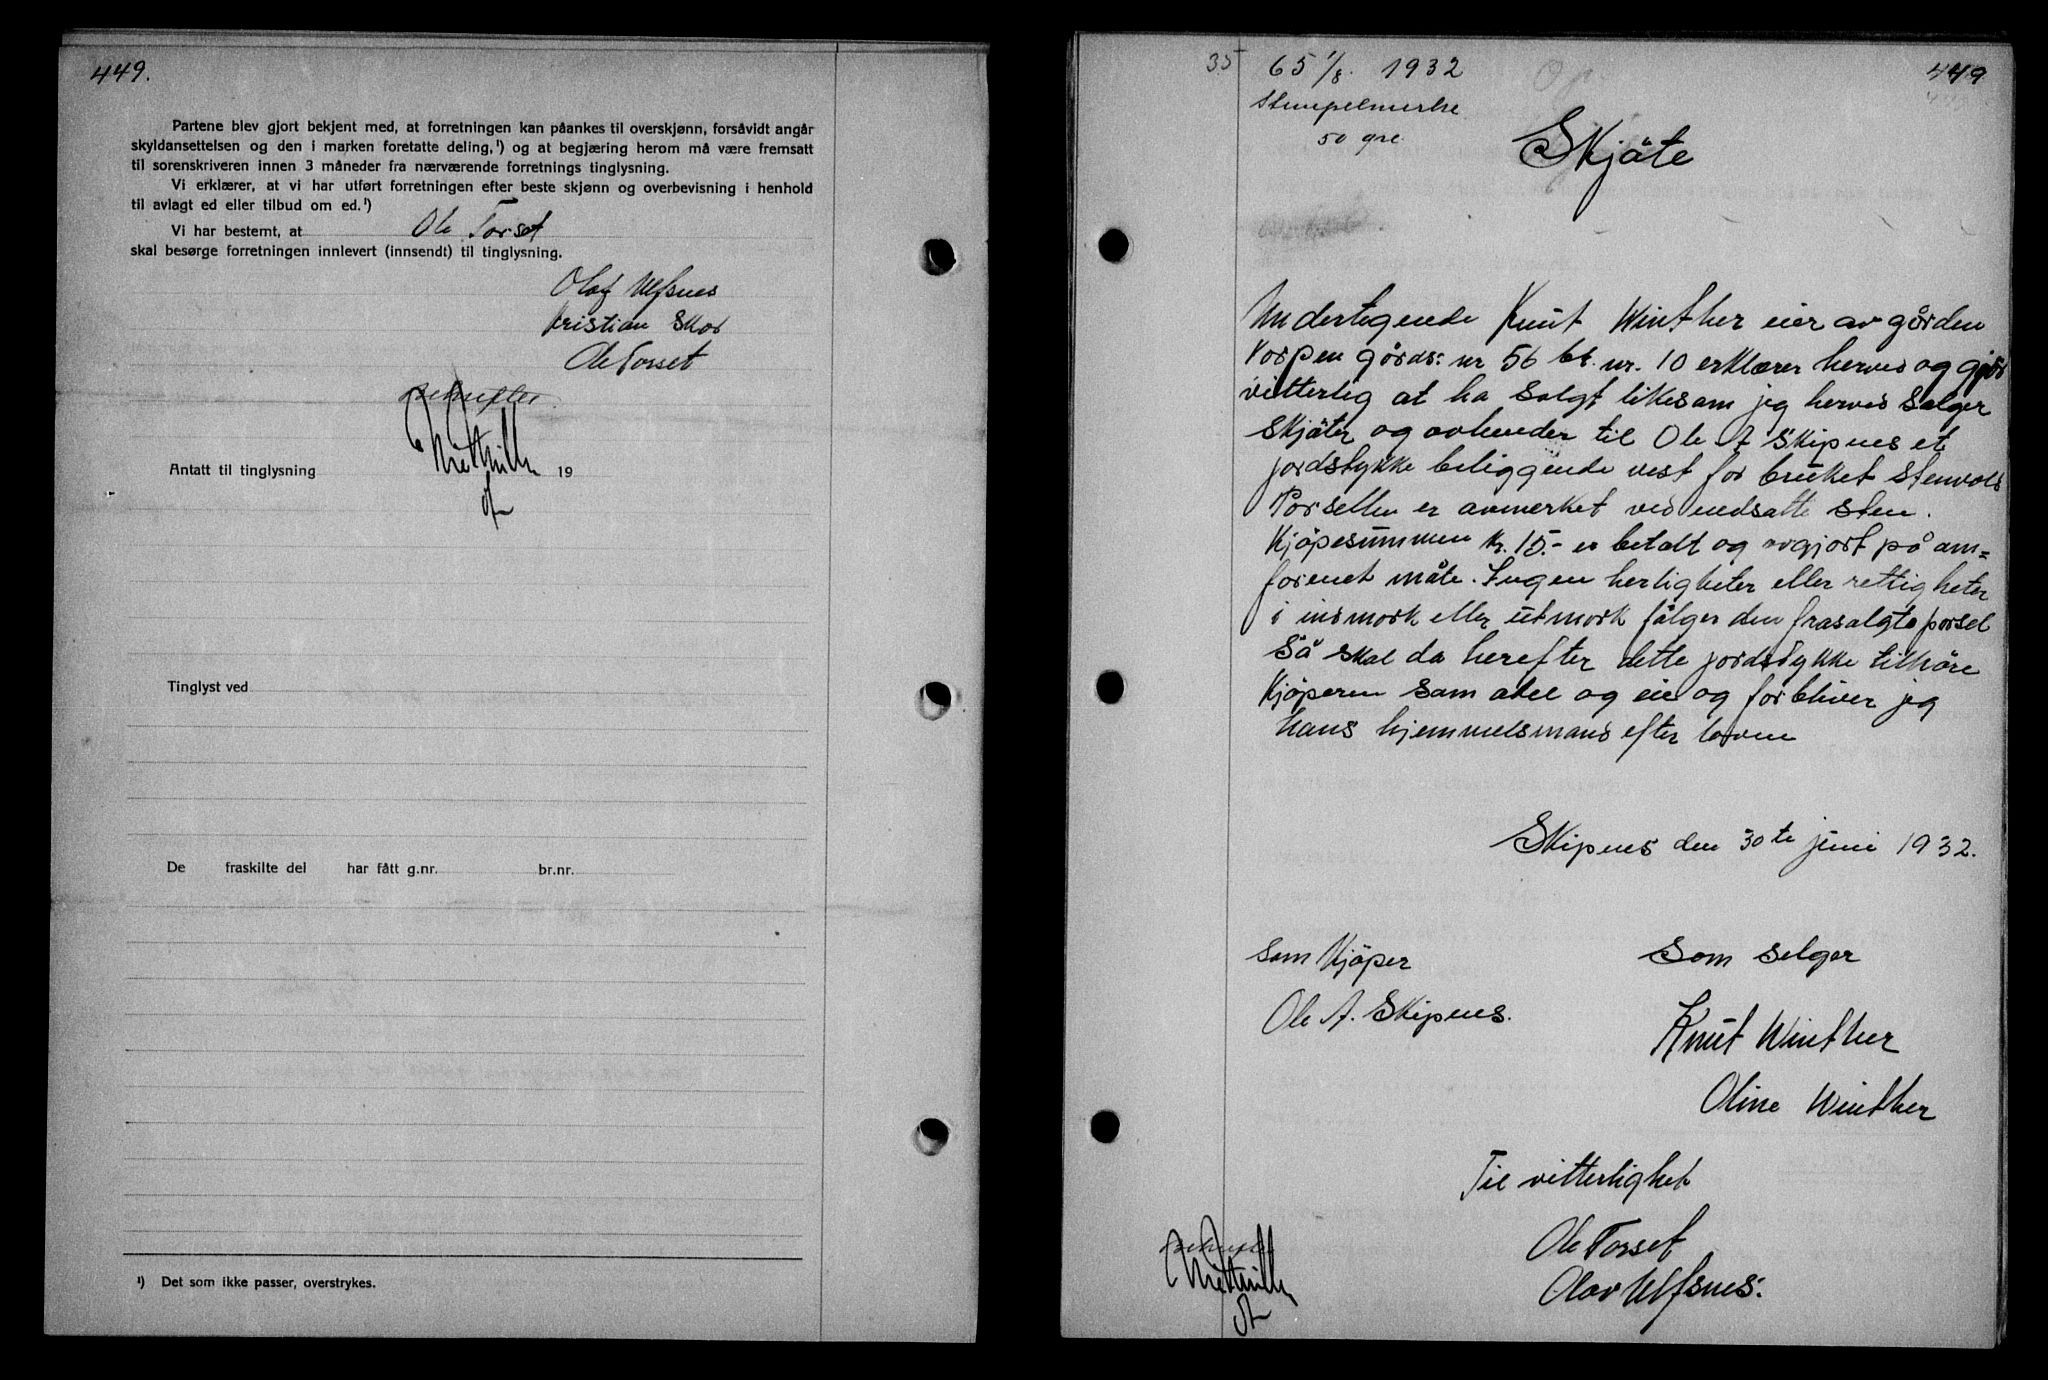 449.
Partene blev gjort bekjent med, at forretningen kan påankes til overskjønn, forsåvidt angår
skyldansettelsen og den i marken foretatte deling,¹) og at begjæring herom må være fremsatt
til sorenskriveren innen 3 måneder fra nærværende forretnings tinglysning.
Vi erklærer, at vi har utført forretningen efter beste skjønn og overbevisning i henhold
til avlagt ed eller tilbud om ed.¹)
Vi har bestemt, at Ole Torset
skal besørge forretningen innlevert (innsendt) til tinglysning.
Olaf Ulfsnes
Kristian Skor
Ole Torset
Antatt til tinglysning 19
Tinglyst ved
De fraskilte del har fått g.nr. br.nr.
¹) Det som ikke passer, overstrykes.
35 65 1/8. 1932 449
Stempelmerke
50 øre
Skjöte
Undertegende Knut Winther eier av gården
Korpen gårds: nr 56 br. nr. 10 erklærer herved og gjör
vitterlig at ha solgt likesom jeg herved selger
skjöter og avhender til Ole A Skipnes et
jordstykke beliggende vest for bruket Stenvold
Parsellen er avmerket ved nedsatte sten.
Kjöpesummen kr. 15.- er betalt og avgjort på om=
forenet måte. Ingen herligheter eller rettigheter
i inmark eller utmark fölger den frasalgte parsel
Så skal da herefter dette jordstykke tilhöre
Kjöperen som odel og eie og forbliver jeg
hans hjemmelsmand efter loven
Skipnes den 30te juni 1932.
Som Kjöper Som selger
Ole A. Skipnes. Knut Winther
Oline Winther
Til vitterlighet
Ole Torset
Olav Ulfsnes: